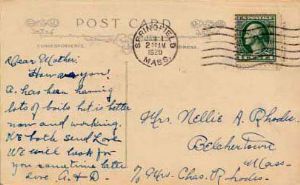 POST CARD
CORRESPONDENCE
SPRINGFIELD
MASS.
JAN
2 AM
1920
Dear Mother:
How are you.
A. has been having
lots of boils but is better
now and working.
We both send Love
We will look for
you sometime later
Love A. & D.
Mrs. Nellie A. Rhodes
Belchertown
Mass
To Mrs. Chas. Rhodes.